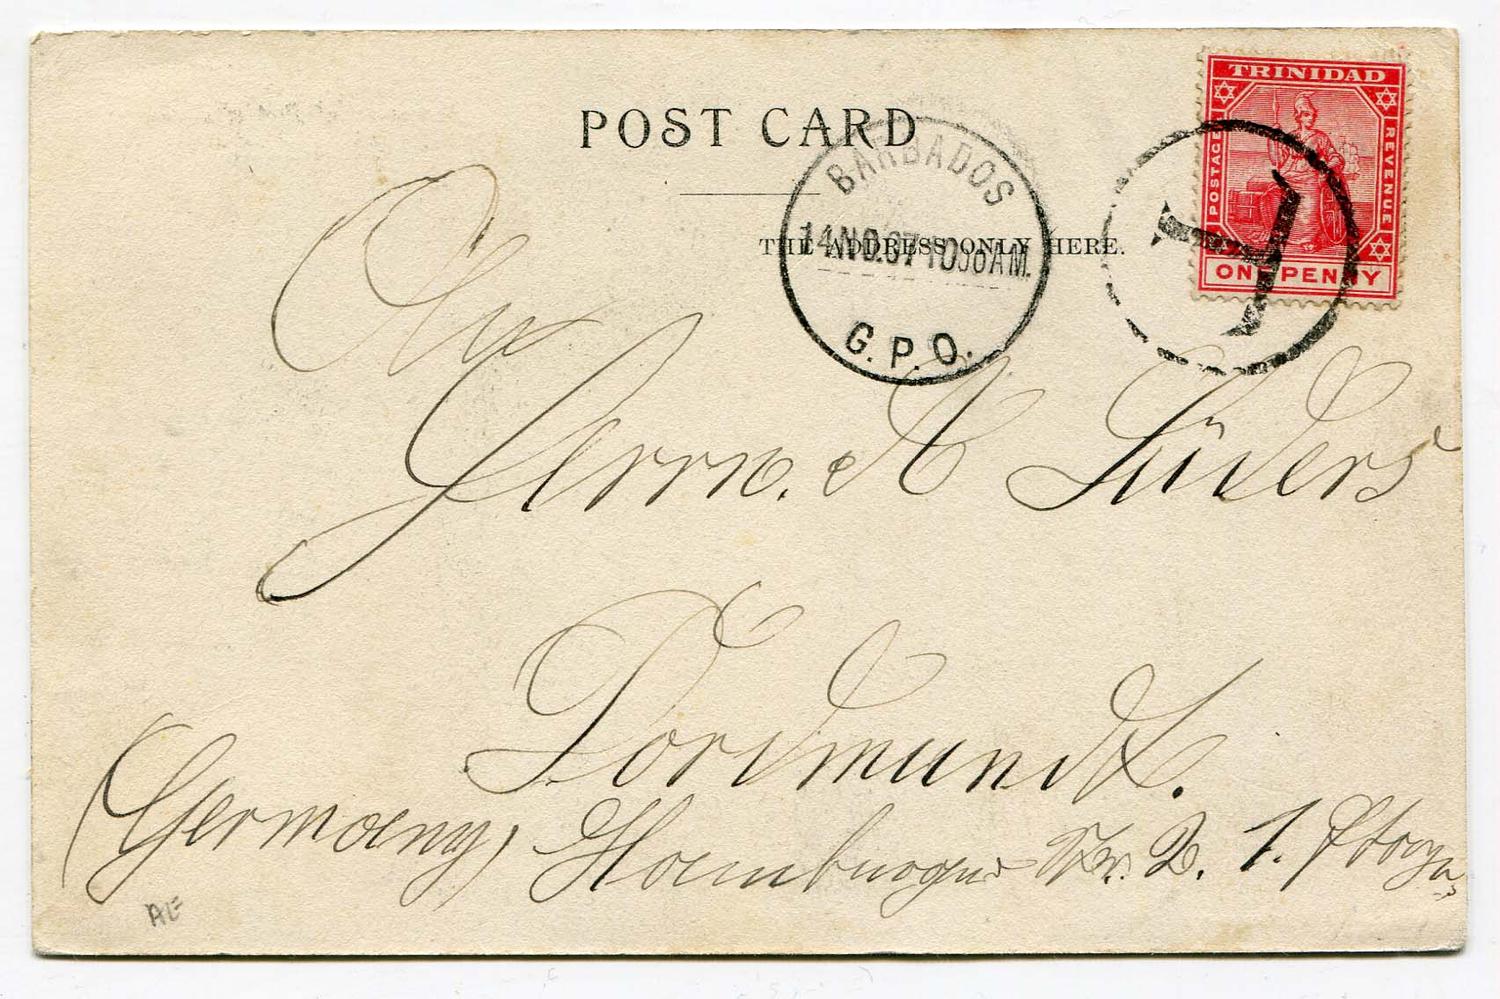 POST CARD
THE ADDRESS ONLY HERE.
TRINIDAD
POSTAGE
REVENUE
ONE PENNY
BARBADOS
14 NO.07 1030AM.
G.P.O.
T
An
Herrn. A Lüders
Dortmund.
(Germany) Hamburger Str. 2. 1. Etage
AL